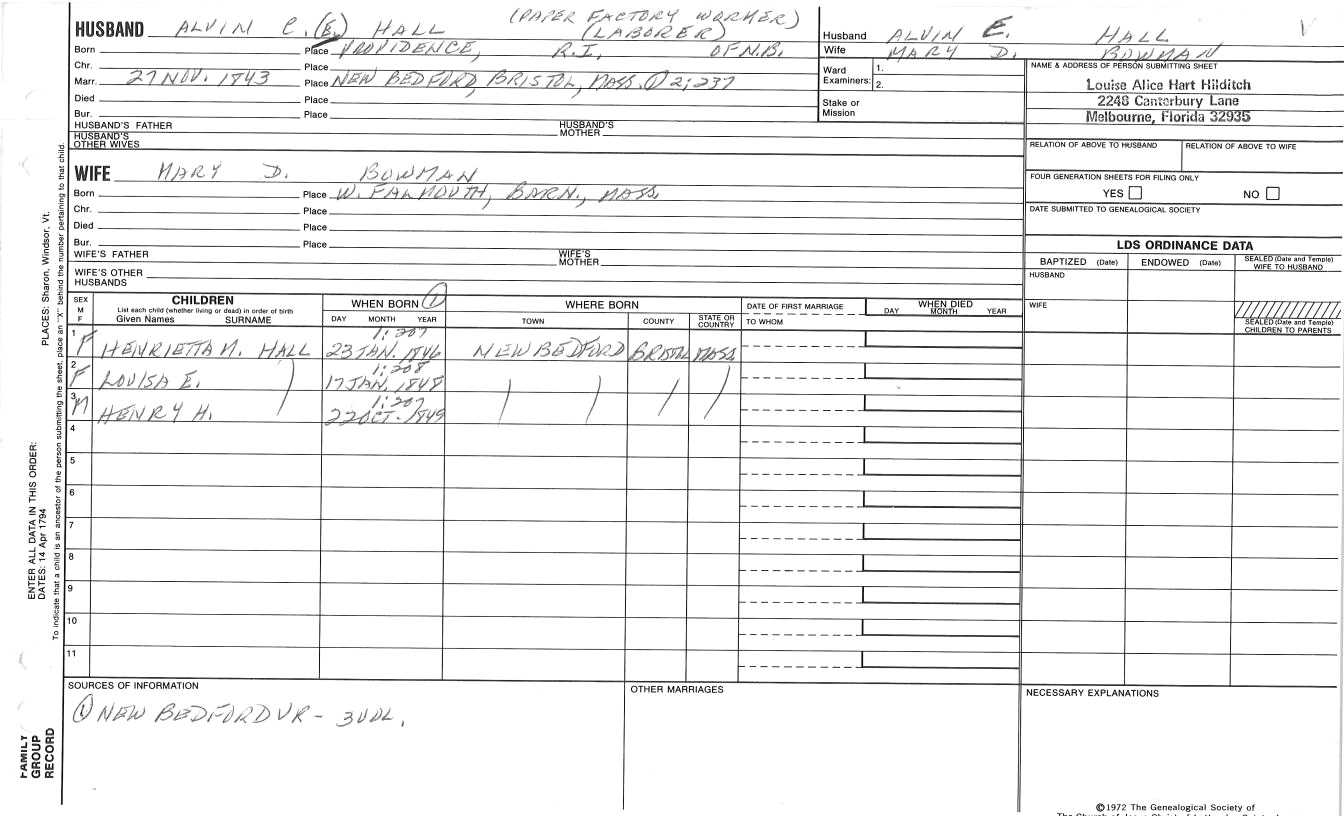 HUSBAND ALVIN C. (E.) HALL (PAPER FACTORY WORKER) (LABORER)
Born Place PROVIDENCE, R.I. OF N.B.
Chr. Place
Marr. 27 NOV. 1843 Place NEW BEDFORD, BRISTOL, MASS. ① 2:237
Died Place
Bur. Place
HUSBAND'S FATHER HUSBAND'S MOTHER
HUSBAND'S OTHER WIVES
Husband ALVIN E. HALL
Wife MARY D. BOWMAN
Ward Examiners: 1. 2.
Stake or Mission
NAME & ADDRESS OF PERSON SUBMITTING SHEET
Louise Alice Hart Hilditch
2248 Canterbury Lane
Melbourne, Florida 32935
RELATION OF ABOVE TO HUSBAND RELATION OF ABOVE TO WIFE
FOUR GENERATION SHEETS FOR FILING ONLY
YES NO
DATE SUBMITTED TO GENEALOGICAL SOCIETY
WIFE MARY D. BOWMAN
Born Place W. FALMOUTH, BARN., MASS.
Chr. Place
Died Place
Bur. Place
WIFE'S FATHER WIFE'S MOTHER
WIFE'S OTHER HUSBANDS
LDS ORDINANCE DATA
BAPTIZED (Date) ENDOWED (Date) SEALED (Date and Temple) WIFE TO HUSBAND
HUSBAND
WIFE
SEALED (Date and Temple) CHILDREN TO PARENTS
SEX M F
CHILDREN
List each child (whether living or dead) in order of birth
Given Names SURNAME
WHEN BORN ①
DAY MONTH YEAR
WHERE BORN
TOWN COUNTY STATE OR COUNTRY
DATE OF FIRST MARRIAGE
TO WHOM
WHEN DIED
DAY MONTH YEAR
1:207
1 F HENRIETTA M. HALL 23 JAN. 1846 NEW BEDFORD BRISTOL MASS
1:208
2 F LOUISA E. 17 JAN. 1848
1:207
3 M HENRY H. 22 OCT. 1849
4
5
6
7
8
9
10
11
SOURCES OF INFORMATION
① NEW BEDFORD VR - 3 VOL.
OTHER MARRIAGES
NECESSARY EXPLANATIONS
©1972 The Genealogical Society of
PLACES: Sharon, Windsor, Vt.
ENTER ALL DATA IN THIS ORDER:
DATES: 14 Apr 1794
To indicate that a child is an ancestor of the person submitting the sheet, place an "X" behind the number pertaining to that child.
FAMILY GROUP RECORD